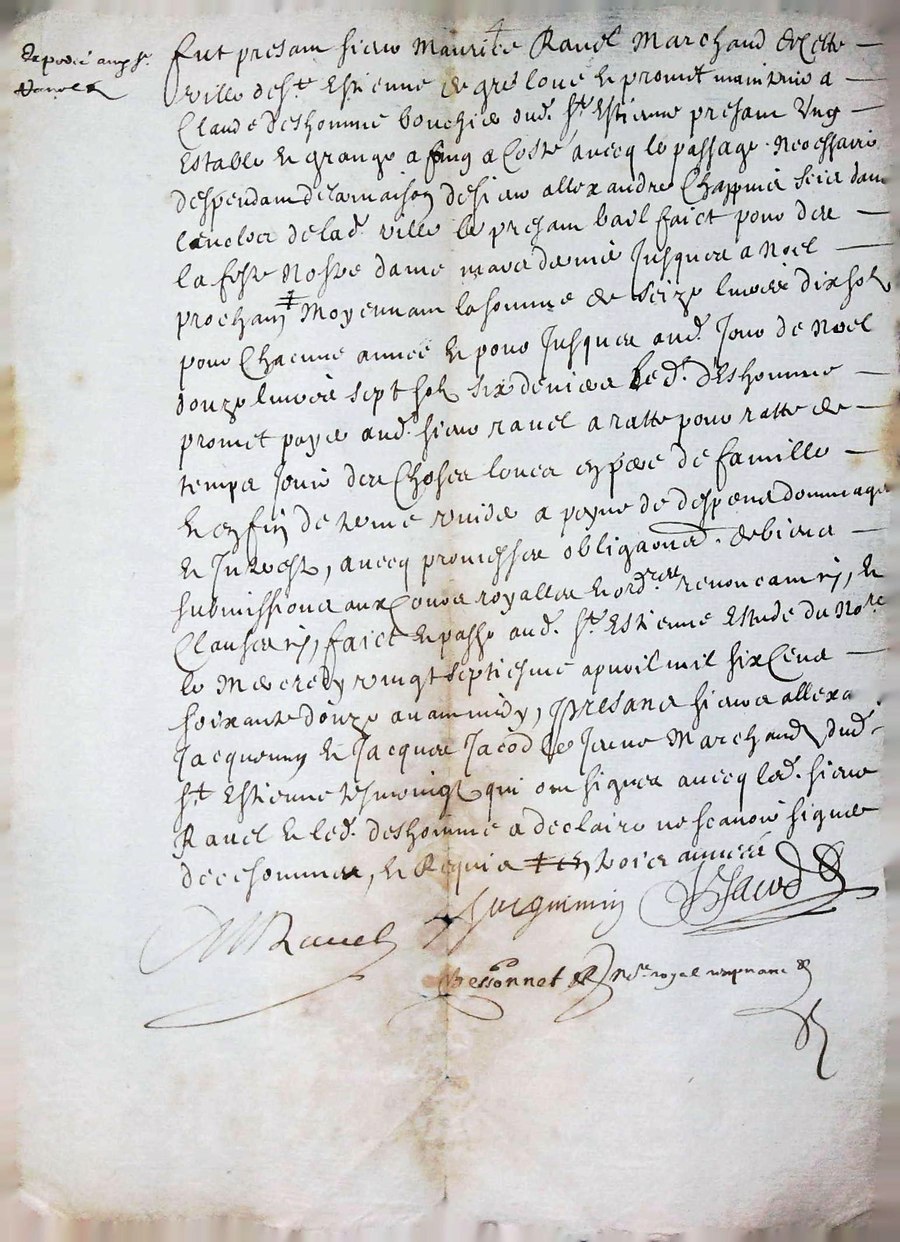 Expedié aux sr.
Ravel
fut presant sieur Maurice Ravel Marchand de cette
ville de St Estienne de gré loue et promet maintenir a
Claude deshomme bouchier dud. St Estienne presant Ung
Estable et grange a foing a Costé avecq le passage Necessaire
despendant de la maison de sieur allexandre Chappuis scise dans
lenclos de lad. ville le presant bail faict pour de
la feste Nostre dame mars dernier Jusques a Noel
prochain ‡ Moyennant la somme de seize livres dix sols
pour Chacune année et pour Jusques aud. Jour de Noel
douze livres sept sols six deniers led. deshomme
promet payer aud. sieur ravel a ratte pour ratte de
temps Jouir des Choses louees en pere de famille
et en fin de terme vuider a peyne de despens dommages
et Interest, avecq promesses obligaons. de biens
submissions aux Cours royalles et ordres renoncement, et
Clauses, faict et passé aud. St Estienne Estude du Nore
le Mercredy vingt septiesme apvril mil six Cens
soixante douze avant midy, presans sieurs allexa
Jacquemin et Jacques Jacod le Jeune Marchands dud.
St Estienne tesmoingt qui ont signes avecq led. sieur
Ravel et led. deshomme a declaire ne scavoir signer
de ce sommes, et Requis ‡ trois annees
MRavel Jacquemin JJacod
Bessonnet Nre royal